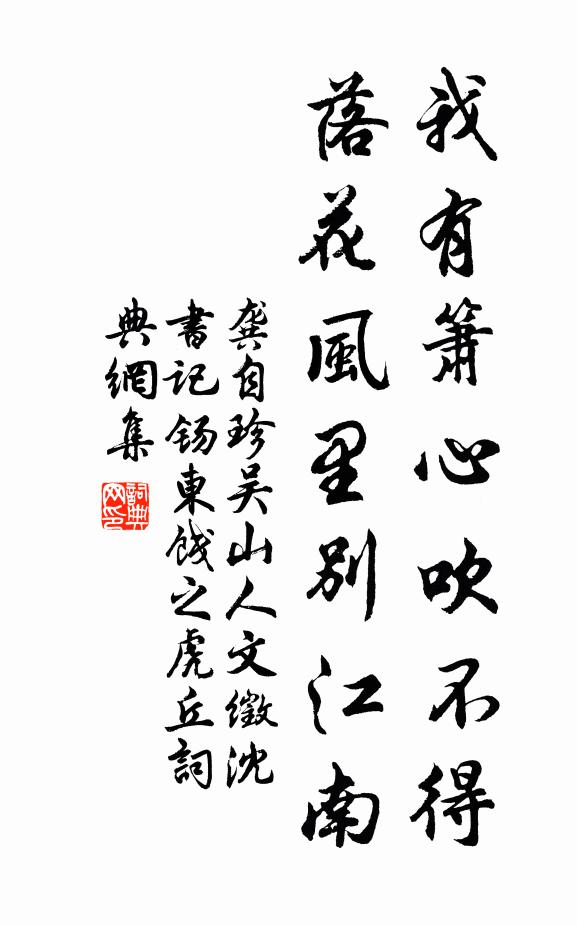 我有箫心吹不得
落花風里別江南
龔自珍吴山人文徵沈
書记鍚東餞之虎丘詞
典網集
詞典
网印